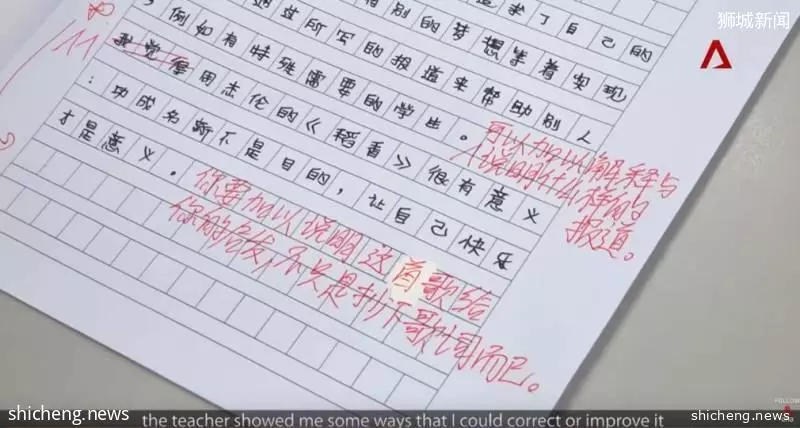 狮城新闻
了自己的
别的梦想 着实现
所写的报道来帮助别人
，例如有特殊需要的学生。
可以加以解释与
说明什么样的
报道。
11
我觉得周杰伦的《稻香》很有意义
：功成名就不是目的，让自己快乐
才是意义。
你要加以说明这首歌给
你的启发，不只是抄下歌词而已。
the teacher showed me some ways that I could correct or improve it
shicheng.news
shicheng.news
FOLLOW